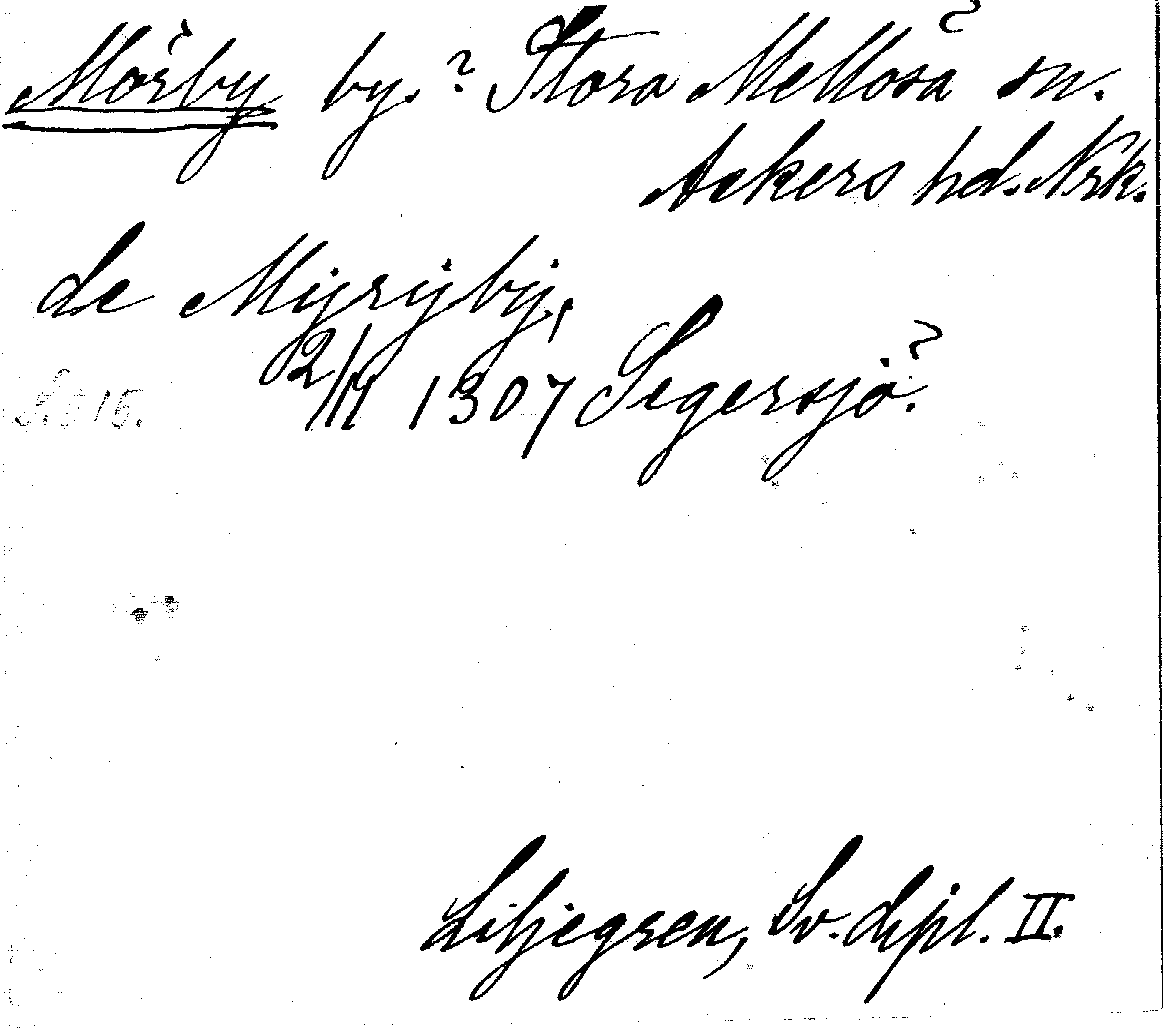 Mörby by.? Stora Mellösa sn.
Askers hd. Nrk.
de Myrijbij,
2/11 1307 Segersjö?
S. 515.
Liljegren, Sv. dipl. II.